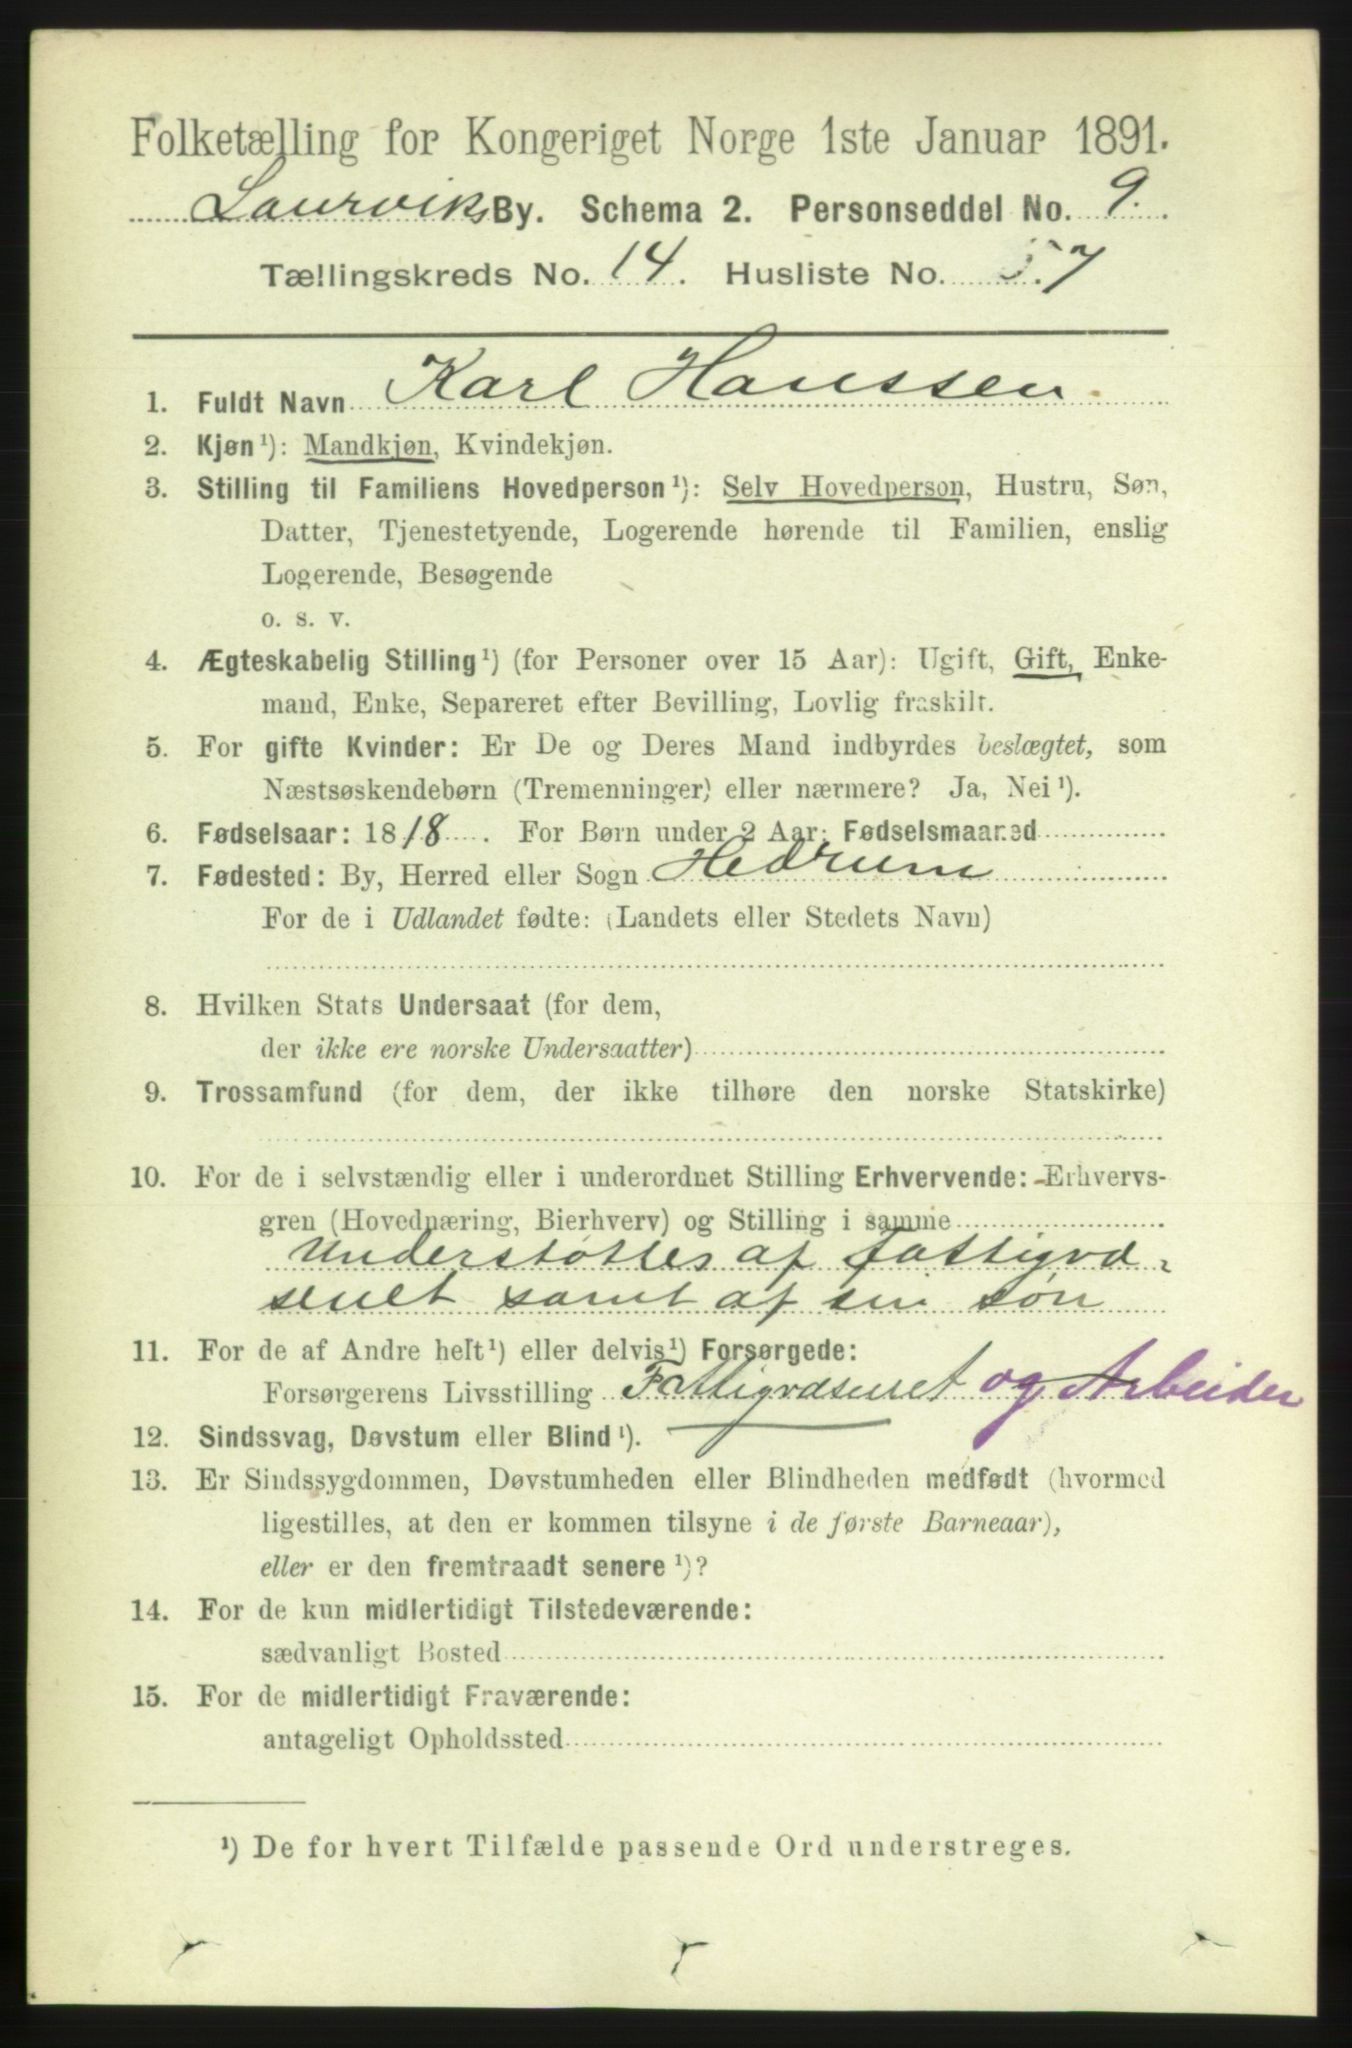 Folketælling for Kongeriget Norge 1ste Januar 1891.
Laurviks By. Schema 2. Personseddel No. 9.
Tællingskreds No. 14. Husliste No. 57
1. Fuldt Navn Karl Hanssen.
2. Kjøn ¹): Mandkjøn, Kvindekjøn.
3. Stilling til Familiens Hovedperson ¹): Selv Hovedperson, Hustru, Søn,
Datter, Tjenestetyende, Logerende hørende til Familien, enslig
Logerende, Besøgende
o. s. v.
4. Ægteskabelig Stilling ¹) (for Personer over 15 Aar): Ugift, Gift, Enke-
mand, Enke, Separeret efter Bevilling, Lovlig fraskilt.
5. For gifte Kvinder: Er De og Deres Mand indbyrdes beslægtet, som
Næstsøskendebørn (Tremenninger) eller nærmere? Ja, Nei ¹).
6. Fødselsaar: 1818. For Børn under 2 Aar: Fødselsmaaned
7. Fødested: By, Herred eller Sogn Hedrum
For de i Udlandet fødte: (Landets eller Stedets Navn)
8. Hvilken Stats Undersaat (for dem,
der ikke ere norske Undersaatter)
9. Trossamfund (for dem, der ikke tilhøre den norske Statskirke)
10. For de i selvstændig eller i underordnet Stilling Erhvervende: Erhvervs-
gren (Hovednæring, Bierhverv) og Stilling i samme
Understøttes af Fattigvæ-
senet samt af sin søn
11. For de af Andre helt ¹) eller delvis ¹) Forsørgede:
Forsørgerens Livsstilling Fattigvæsenet og Arbeider
12. Sindssvag, Døvstum eller Blind ¹).
13. Er Sindssygdommen, Døvstumheden eller Blindheden medfødt (hvormed
ligestilles, at den er kommen tilsyne i de første Barneaar),
eller er den fremtraadt senere ¹)?
14. For de kun midlertidigt Tilstedeværende:
sædvanligt Bosted
15. For de midlertidigt Fraværende:
antageligt Opholdssted
¹) De for hvert Tilfælde passende Ord understreges.